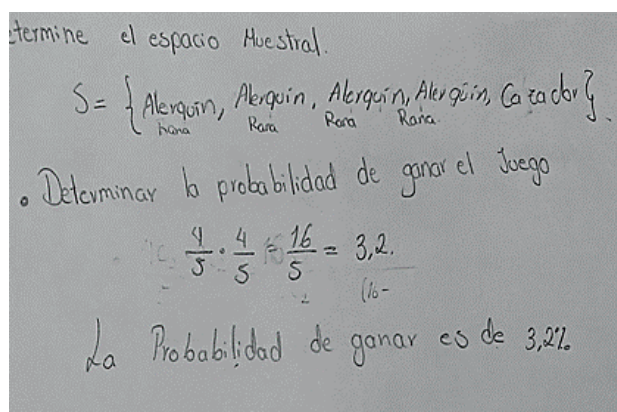 etermine el espacio Muestral.
S= { Alerquin, Alerquin, Alerquin, Alerquin, Cazador}.
Rana Rana Rana Rana.
• Determinar la probabilidad de ganar el Juego
4/5 · 4/5 = 16/5 = 3,2.
(16-
La Probabilidad de ganar es de 3,2%